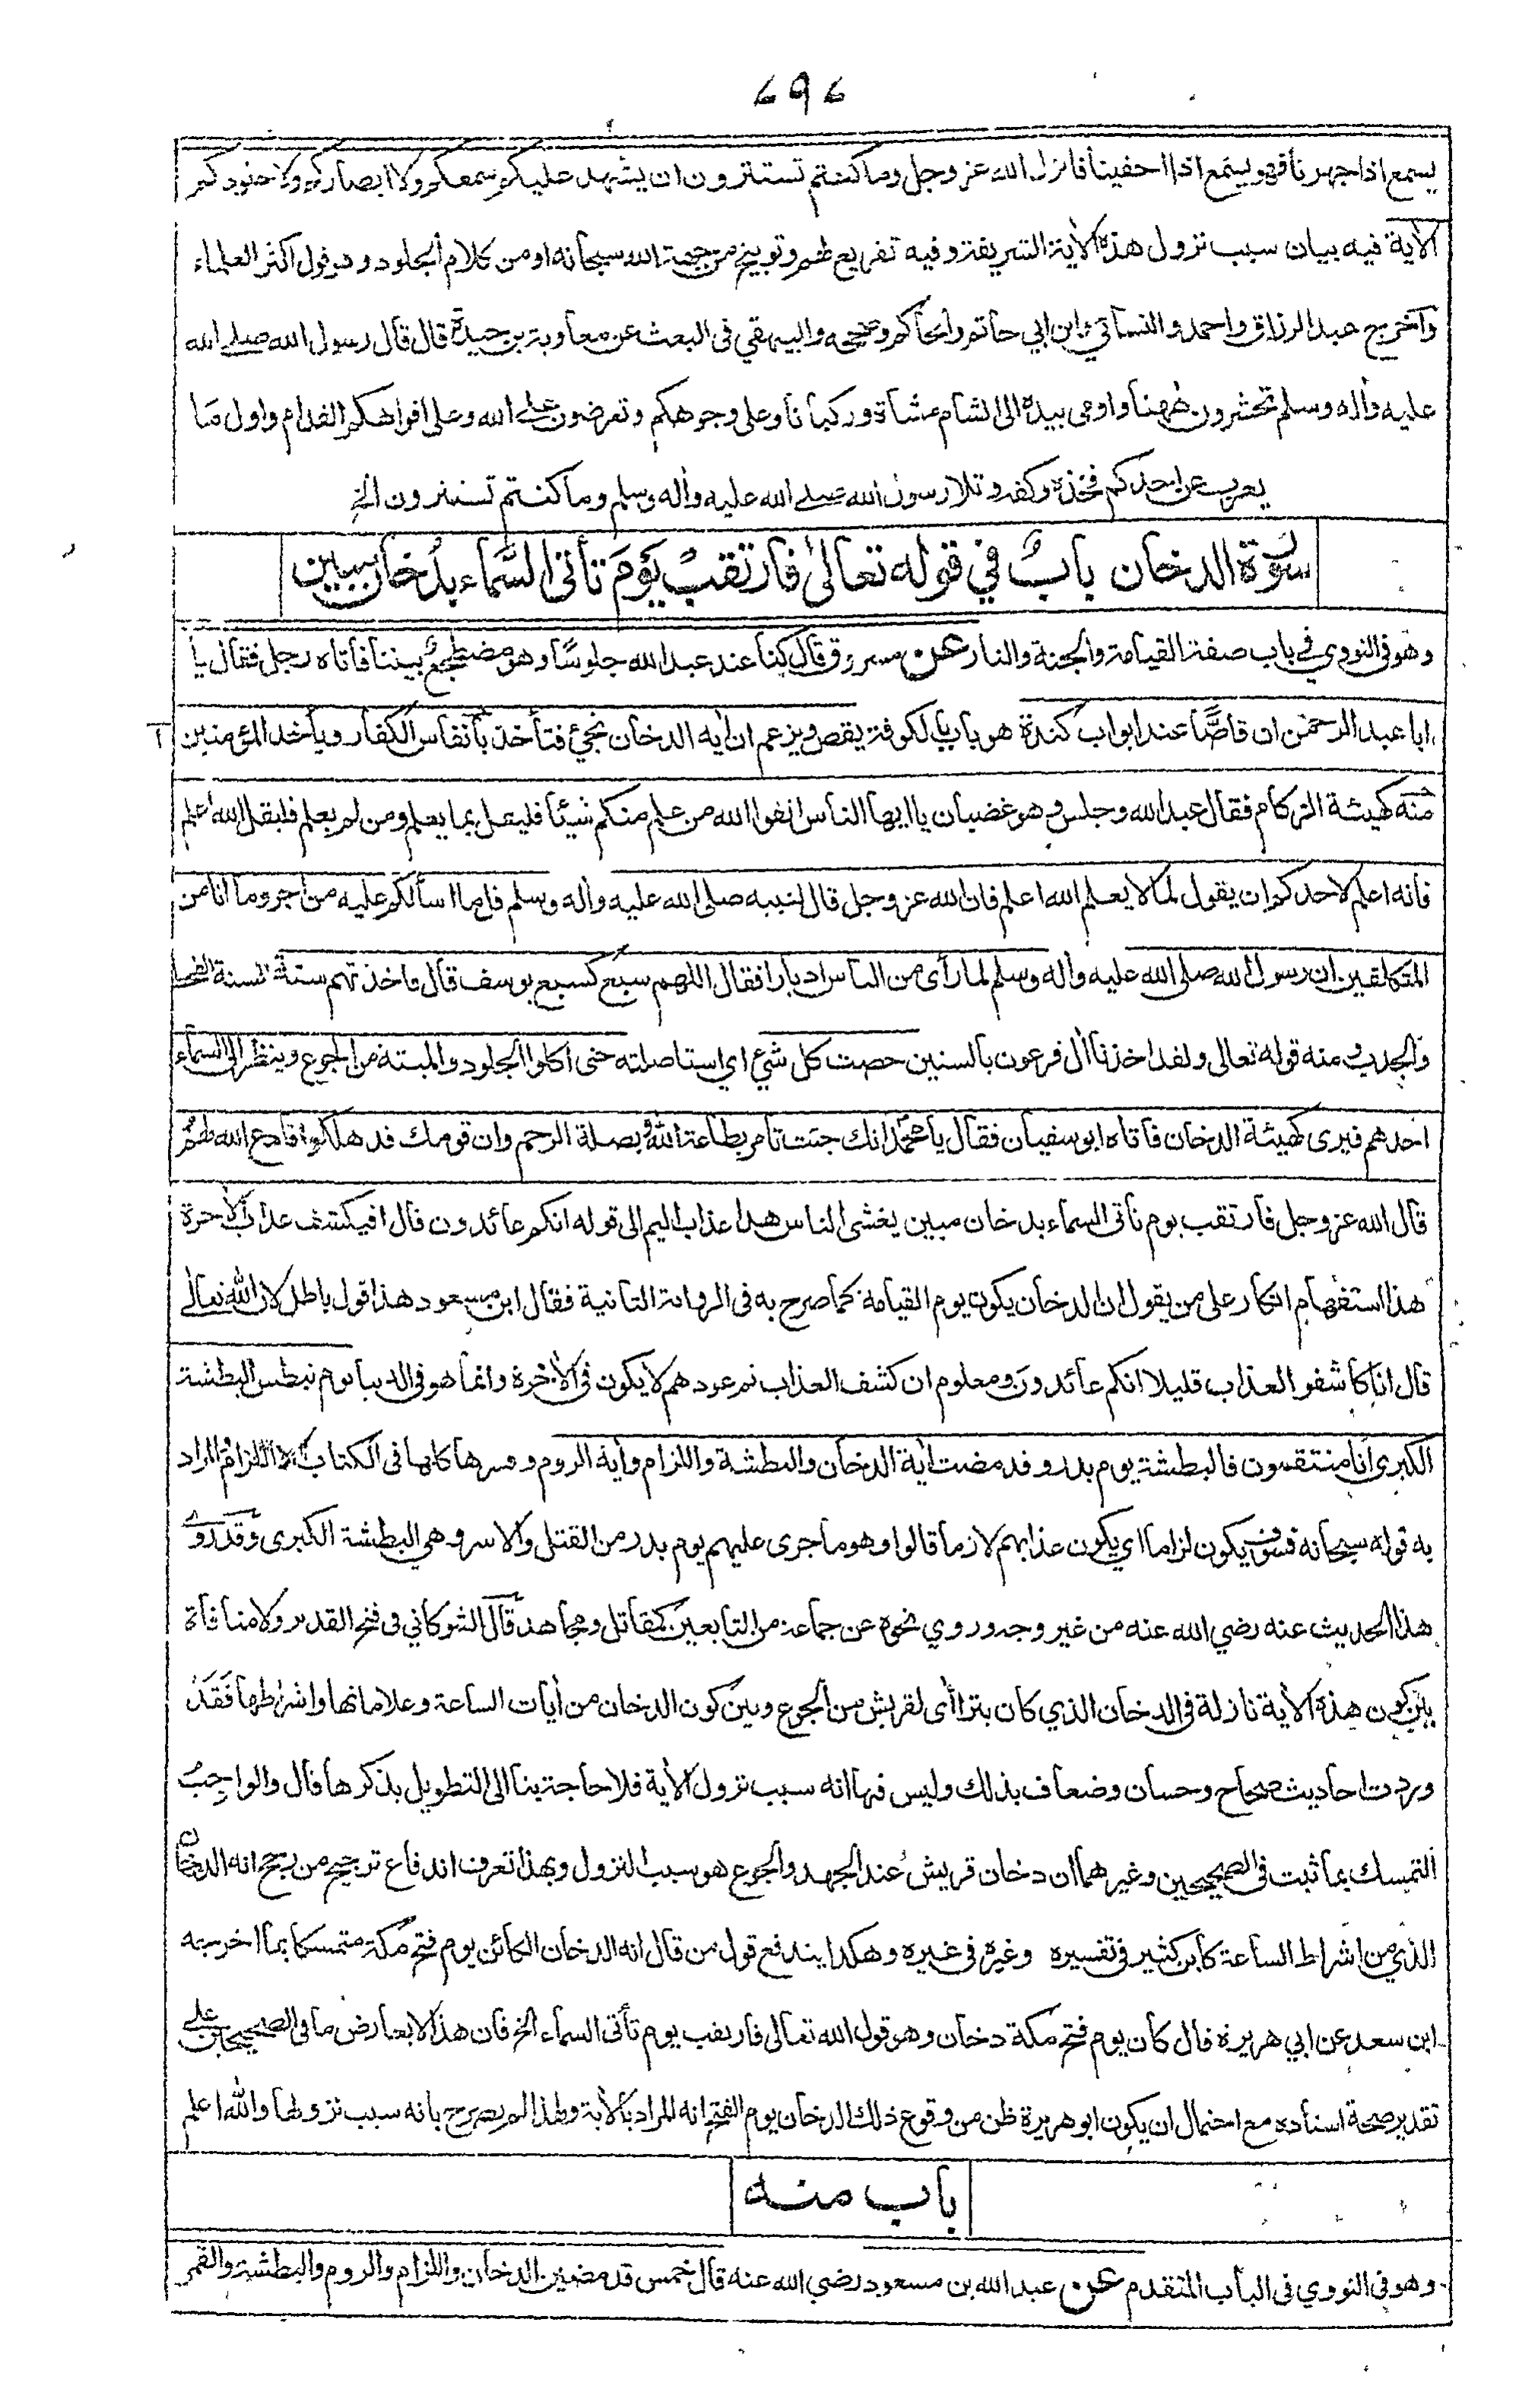 ٦٩٦
يسمع اذا جهرنا فهو يسمع اذا اخفينا فانزل الله عز وجل وما كنتم تستترون ان يشهد عليكم سمعكم ولا ابصاركم ولا جلودكم
الأية فيه بيان سبب نزول هذه الأية الشريفة وفيه تقريع لهم وتوبيخ من جهة الله سبحانه او من كلام الجلود وهو قول اكثر العلماء
وآخرج عبد الرزاق واحمد والنسائي وابن ابي حاتم والحاكم وصححه والبيهقي فى البعث عن معاوية بن حيدة قال قال رسول الله صلى الله
عليه واٰله وسلم تحشرون ههنا واومى بيده الى الشام مشاة وركبانا وعلى وجوهكم وتعرضون على الله وعلى افواهكم الفدام واول ما
يعرب عن احدكم فخذه وكفه وتلا رسول الله صلى الله عليه واٰله وسلم وما كنتم تستترون الخ
سورة الدخان بابٌ في قوله تعالىٰ فارتقبْ يَوْمَ تأتى السَّماء بدُخان مبين
وهو فى النووي في باب صفة القيامة والجنة والنار عن مسروق قال كنا عند عبد الله جلوسًا وهو مضطجعٌ بيننا فأتاه رجل فقال يا
ابا عبد الرحمٰن ان قاصًّا عند ابواب كندة هو باب بالكوفة يقص ويزعم ان اٰية الدخان تجئ فتأخذ بأنفاس الكفار ويأخذ المؤمنين
منه كهيئة الزكام فقال عبد الله وجلس وهو غضبان يا ايها الناس اتقوا الله من علم منكم شيئا فليقل بما يعلم ومن لم يعلم فليقل الله اعلم
فانه اعلم لاحدكم ان يقول لما لا يعلم الله اعلم فان الله عز وجل قال لنبيه صلى الله عليه واٰله وسلم قل ما اسألكم عليه من اجر وما انا من
المتكلفين ان رسول الله صلى الله عليه واٰله وسلم لما رأى من الناس ادبارا فقال اللهم سبع كسبع يوسف قال فاخذتهم سنة السنة القحط
والجدب ومنه قوله تعالى ولقد اخذنا اٰل فرعون بالسنين حصت كل شئ اي استاصلته حتى اكلوا الجلود والميتة من الجوع وينظر الى السماء
احدهم فيرى كهيئة الدخان فأتاه ابو سفيان فقال يا محمد انك جئت تامر بطاعة الله وبصلة الرحم وان قومك قد هلكوا فادع الله لهم
قال الله عز وجل فارتقب يوم تأتى السماء بدخان مبين يغشى الناس هذا عذاب اليم الى قوله انكم عائدون قال افيكشف عذاب الأخرة
هذا استفهام انكار على من يقول ان الدخان يكون يوم القيامة كما صرح به فى الرواية الثانية فقال ابن مسعود هذا قول باطل لان الله تعالى
قال انا كاشفو العذاب قليلا انكم عائدون ومعلوم ان كشف العذاب ثم عودهم لا يكون فى الأخرة وانما هو فى الدنيا يوم نبطش البطشة
الكبرى انا منتقمون فالبطشة يوم بدر وقد مضت اٰية الدخان والبطشة واللزام واٰية الروم وفسرها كلها فى الكتاب الا اللزام والمراد
به قوله سبحانه فسوف يكون لزاما اي يكون عذابهم لازما قالوا وهو ما جرى عليهم يوم بدر من القتل والاسر وهي البطشة الكبرى وقد روي
هذا الحديث عنه رضي الله عنه من غير وجه وروي نحوه عن جماعة من التابعين كمقاتل ومجاهد قال الشوكاني فى فتح القدير ولا منافاة
بين كون هذه الأية نازلة فى الدخان الذي كان يتراأى لقريش من الجوع وبين كون الدخان من اٰيات الساعة وعلاماتها واشراطها فَقَدْ
وردت احاديث صحاح وحسان وضعاف بذلك وليس فيها انه سبب نزول الأية فلا حاجة بنا الى التطويل بذكرها قال والواجبُ
التمسك بما ثبت فى الصحيحين وغيرهما ان دخان قريش عند الجهد والجوع هو سبب النزول وبهذا تعرف اندفاع ترجيح من رجح انه الدخان
الذي من اشراط الساعة كابن كثير فى تفسيره وغيره فى غيره وهكذا يندفع قول من قال انه الدخان الكائن يوم فتح مكة متمسكا بما اخرجه
ابن سعد عن ابي هريرة قال كان يوم فتح مكة دخان وهو قول الله تعالى فارتقب يوم تأتى السماء الخ فان هذا لا يعارض ما فى الصحيحين على
تقدير صحة اسناده مع احتمال ان يكون ابو هريرة ظن من وقوع ذلك الدخان يوم الفتح انه المراد بالأية ولهذا لم يصرح بانه سبب نزولها والله اعلم
باب منه
وهو فى النووي فى الباب المتقدم عن عبد الله بن مسعود رضي الله عنه قال خمس قد مضين الدخان واللزام والروم والبطشة والقمر